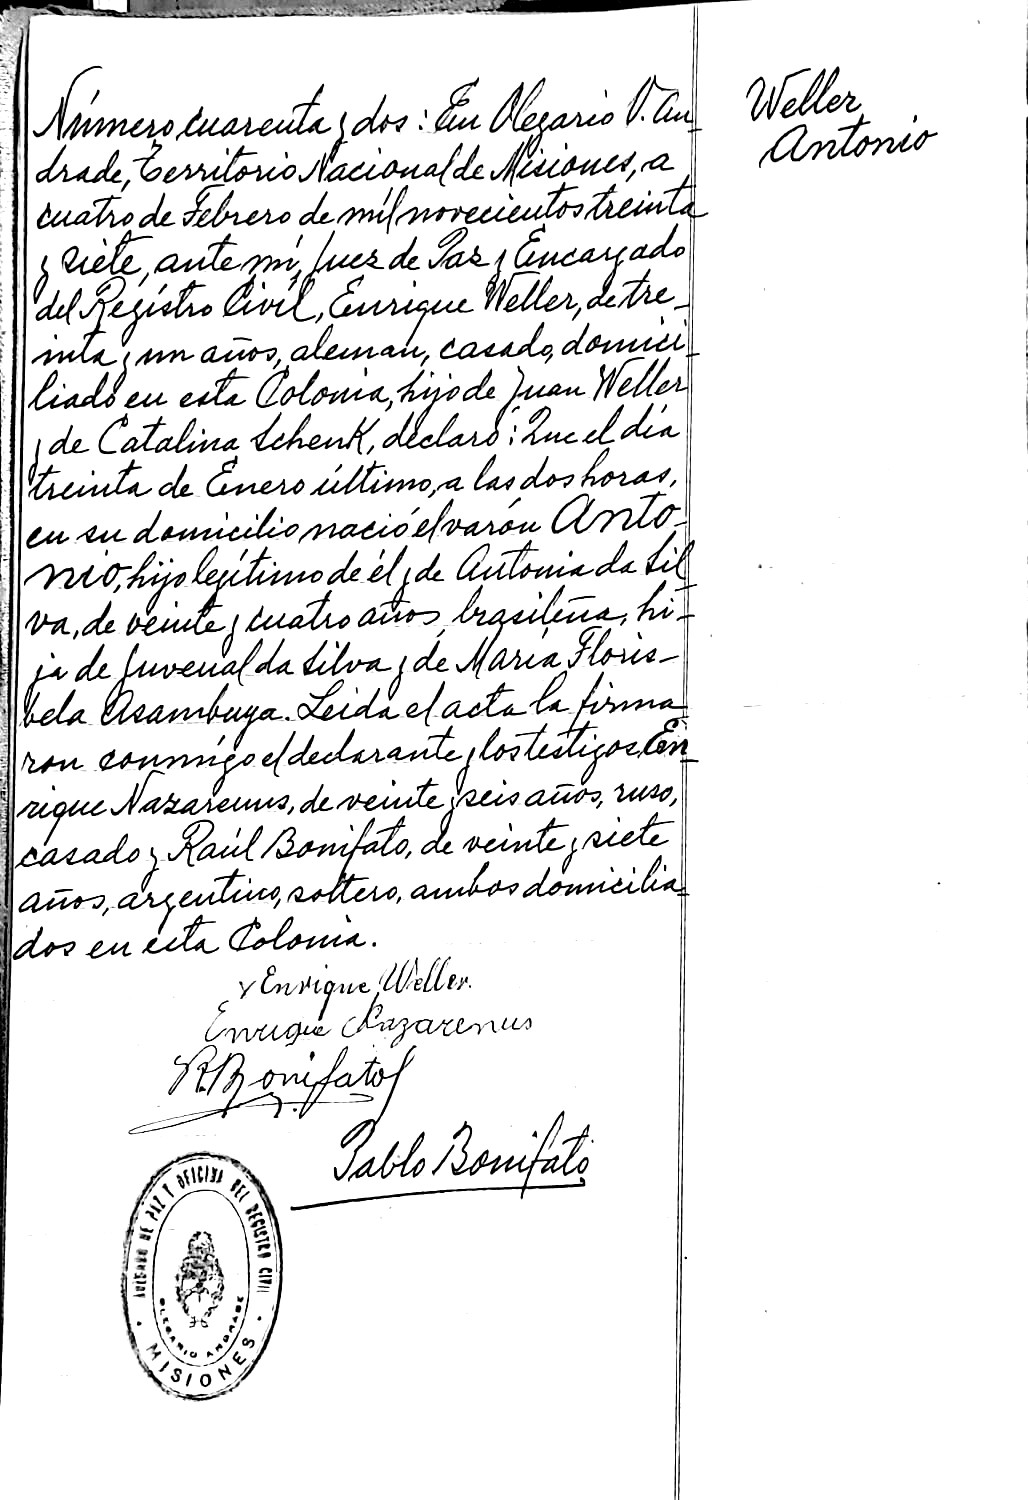 Weller
Antonio
Número cuarenta y dos: En Olegario V. An-
drade, Territorio Nacional de Misiones, a
cuatro de Febrero de mil novecientos treinta
y siete, ante mí, Juez de Paz y Encargado
del Registro Civil, Enrique Weller, de tre-
inta y un años, aleman, casado, domici-
liado en esta Colonia, hijo de Juan Weller
y de Catalina Schenk, declaró: Que el día
treinta de Enero último, a las dos horas,
en su domicilio nació el varón Anto-
nio, hijo legítimo de él y de Antonia da Sil
va, de veinte y cuatro años, brasileña, hi-
ja de Juvenal da Silva y de María Floris-
bela Asambuya. Leida el acta la firma
ron conmigo el declarante y los testigos En-
rique Nazarenus, de veinte y seis años, ruso,
casado y Raúl Bonifato, de veinte y siete
años, argentino, soltero, ambos domicilia-
dos en esta Colonia.
Enrique Weller.
Enrique Nazarenus
R. Bonifato
Pablo Bonifato
JUZGADO DE PAZ Y OFICINA DEL REGISTRO CIVIL
OLEGARIO ANDRADE
MISIONES